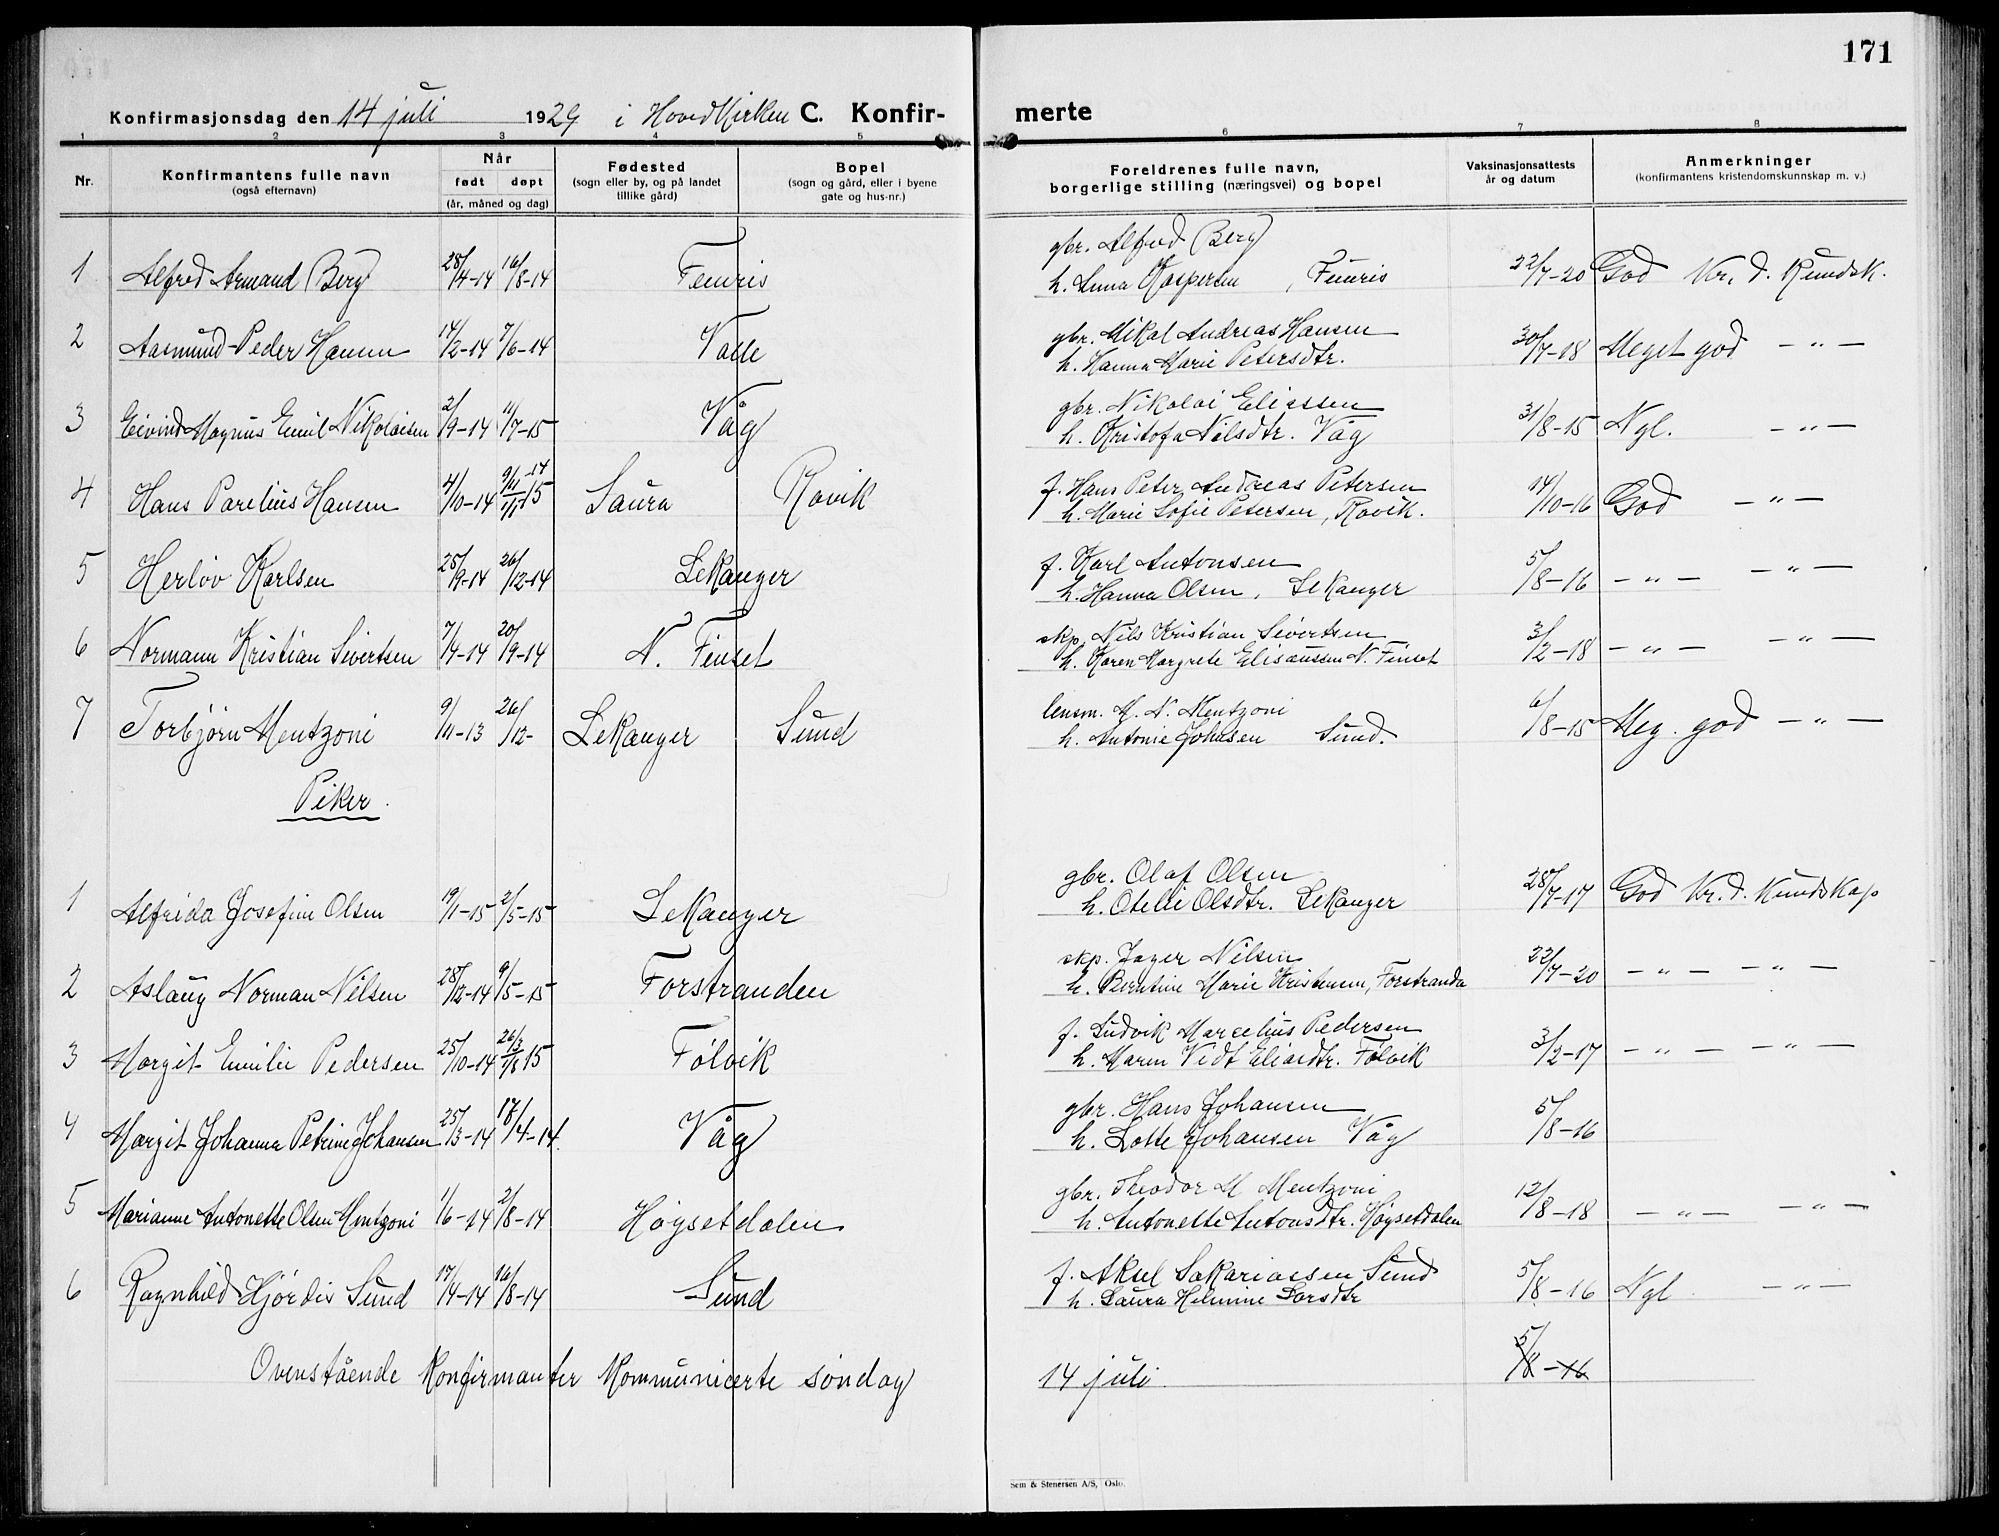 171
Konfirmasjonsdag den 14 juli 1929 i Hovedkirken C. Konfir- merte
1 2 3 4 5 6 7 8
Nr. Konfirmantens fulle navn (også efternavn) Når født døpt (år, måned og dag) Fødested (sogn eller by, og på landet tillike gård) Bopel (sogn og gård, eller i byene gate og hus-nr.) Foreldrenes fulle navn, borgerlige stilling (næringsvei) og bopel Vaksinasjonsattests år og datum Anmerkninger (konfirmantens kristendomskunnskap m. v.)
gbr. Alfred Berg
1 Alfred Armand Berg 28/4-14 16/8-14 Fenris h. Anna Kaspersen, Fenris 22/7-20 God Kr. d. Kundsk.
gbr. Mikal Andreas Hansen
2 Aasmund Peder Hansen 14/2-14 7/6-14 Valle h. Hanna Marie Petersdtr. 30/7-18 Meget god - " -
gbr. Nikolai Eliassen
3 Eivind Magnus Emil Nikolaisen 2/9-14 11/7-15 Våg h. Kristofa Nilsdtr. Våg 31/8-15 Ngl. - " -
f. Hans Peter Andreas Petersen
4 Hans Parelius Hansen 4/10-14 9/11-14 1/1 15 Saura Rovik h. Marie Sofie Petersen, Rovik. 14/10-16 God - " -
f. Karl Antonsen
5 Herlöv Karlsen 28/9-14 26/12-14 Lekanger h. Hanna Olsen, Lekanger 5/8-16 - " - - " -
skp. Nils Kristian Sivertsen
6 Normann Kristian Sivertsen 7/4-14 20/9-14 N. Finset h. Karen Margrete Elisaussen N. Finset 3/2-18 - " - - " -
lensm. M. N. Mentzoni
7 Torbjörn Mentzoni 9/11-13 26/12- Lekanger Sund h. Antonie Johnsen Sund. 6/8-15 Meg. god - " -
Piker.
gbr. Olaf Olsen
1 Alfrida Josefine Olsen 19/1-15 2/5-15 Lekanger h. Otelie Olsdtr. Lekanger 28/7-17 God Kr. d. Kundskap
skp. Jager Nilsen
2 Aslaug Norman Nilsen 28/12-14 9/5-15 Forstranden h. Berntine Marie Kristensen, Forstranda 22/7-20 - " - - " -
f. Ludvik Marselius Pedersen
3 Margit Emilie Pedersen 25/10-14 26/3 1/8 15 Følvik h. Maren Vidt Eliasdtr. Følvik 3/2-17 - " - - " -
gbr. Hans Johansen
4 Margit Johanna Petrine Johansen 25/3-14 17/4-14. Våg h. Lotte Johansen Våg 5/8-16
gbr. Theodor M Mentzoni
5 Marianne Antonette Olsen Mentzoni 1/6-14 2/8-14 Høgsetdalen h. Antonette Antonsdtr. Høgsetdalen 12/8-18 - " - - " -
f. Aksel Sakariassen Sund
6 Ragnhild Hjördis Sund 17/4-14 16/8-14 Sund h. Laura Helmine Larsdtr 5/8-16 Ngl. - " -
Ovenstående Konfirmanter Kommunicerte söndag 14 juli. 5/8-16
Sem & Stenersen A/S, Oslo.